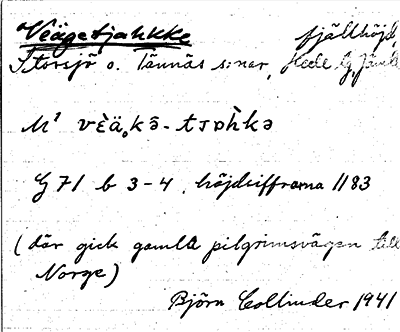 Veägetjahkke fjällhöjd,
Storsjö o. Tännäs s:nar, Hede
M¹ vèä̀ₒkə̂-tᴊɒh̀kə
G 71 b 3-4, höjdsiffrorna 1183
(där gick gamla pilgrimsvägen till
Norge)
Björn Collinder 1941